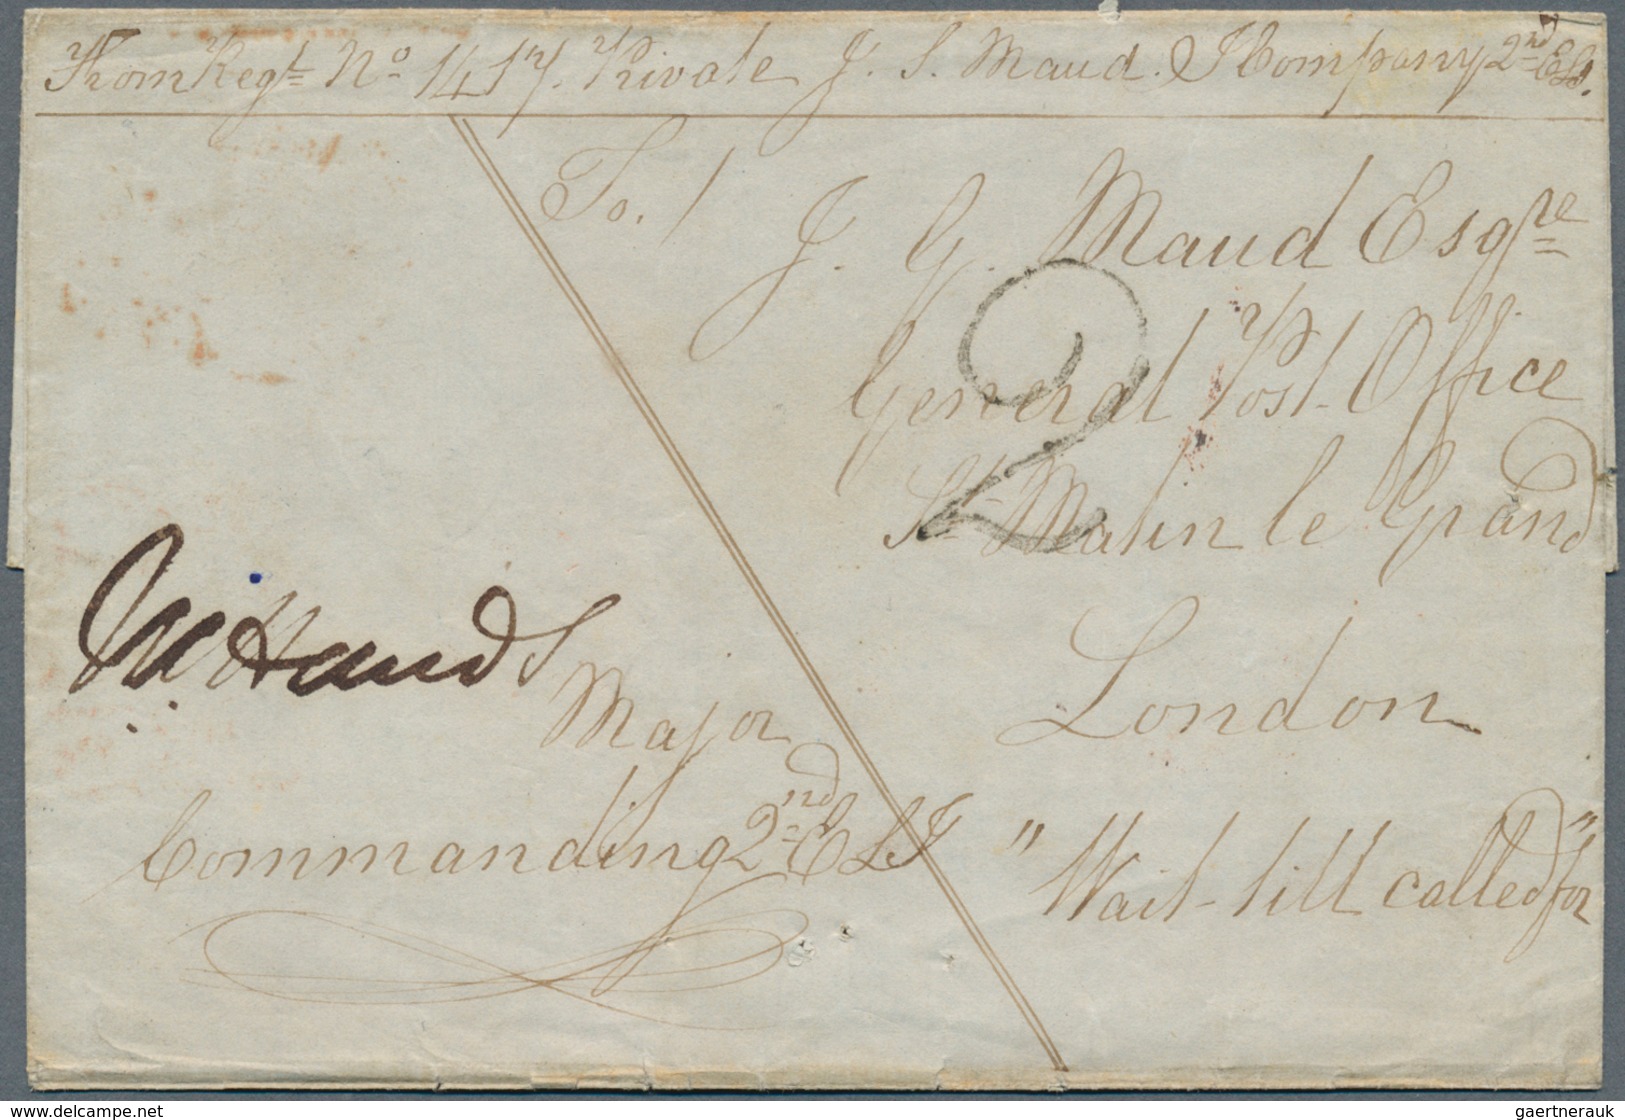 From Regt No 1417. Private J. S. Maud. I Company 2nd E L I.
To /
J. G. Maud Esqre
General Post Office
St Matin le Grand
London
"Wait till called for"
2
Major
Commanding 2nd E L I
gaertnerauk
delcampe.net